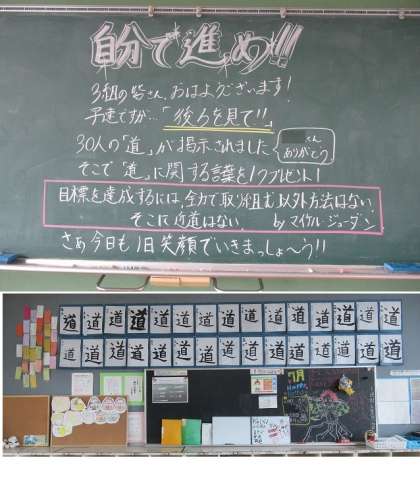 自分で進め!!!
3組の皆さん、おはようございます!
早速ですが…「後ろを見て!!」
30人の「道」が掲示されました
くん
ありがとう
そこで「道」に関する言葉を1つプレゼント!
目標を達成するには、全力で取り組む以外方法はない。
そこに近道はない。 by マイケル・ジョーダン
さぁ今日も1日笑顔でいきまっしょ〜う!!
道 道 道 道 道 道 道 道 道 道 道 道 道 道 道
道 道 道 道 道 道 道 道 道 道 道 道 道 道 道
7月
HAPPY